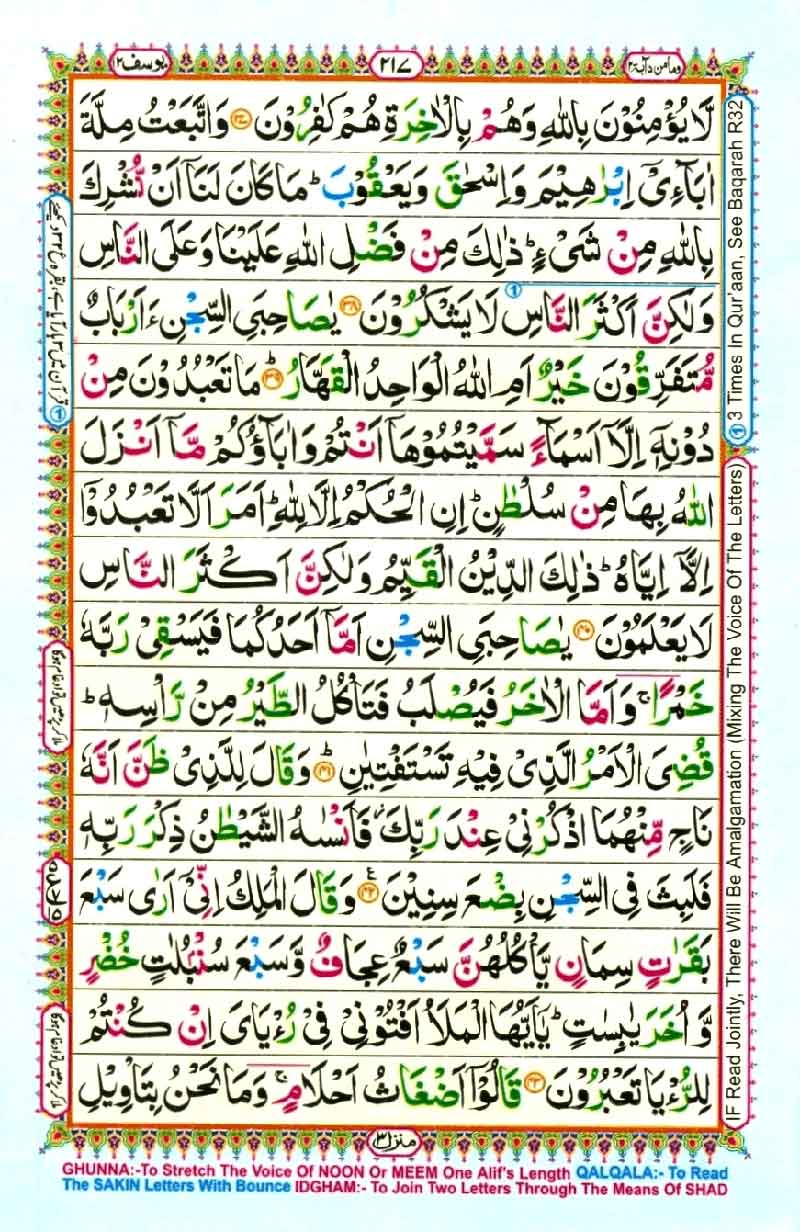 یوسف ۱۲
۲۱۷
وما من دآبة ۱۲
لَا يُؤْمِنُوْنَ بِاللّٰهِ وَهُمْ بِالْاٰخِرَةِ هُمْ كٰفِرُوْنَ ﴿۳۷﴾ وَاتَّبَعْتُ مِلَّةَ
اٰبَآءِىْٓ اِبْرٰهِيْمَ وَاِسْحٰقَ وَيَعْقُوْبَ ؕ مَا كَانَ لَنَآ اَنْ نُّشْرِكَ
بِاللّٰهِ مِنْ شَىْءٍ ؕ ذٰلِكَ مِنْ فَضْلِ اللّٰهِ عَلَيْنَا وَعَلَى النَّاسِ
وَلٰكِنَّ اَكْثَرَ النَّاسِ لَا يَشْكُرُوْنَ ﴿۳۸﴾ يٰصَاحِبَىِ السِّجْنِ ءَاَرْبَابٌ
مُّتَفَرِّقُوْنَ خَيْرٌ اَمِ اللّٰهُ الْوَاحِدُ الْقَهَّارُ ﴿۳۹﴾ مَا تَعْبُدُوْنَ مِنْ
دُوْنِهٖٓ اِلَّآ اَسْمَآءً سَمَّيْتُمُوْهَآ اَنْتُمْ وَاٰبَآؤُكُمْ مَّآ اَنْزَلَ
اللّٰهُ بِهَا مِنْ سُلْطٰنٍ ؕ اِنِ الْحُكْمُ اِلَّا لِلّٰهِ ؕ اَمَرَ اَلَّا تَعْبُدُوْٓا
اِلَّآ اِيَّاهُ ؕ ذٰلِكَ الدِّيْنُ الْقَيِّمُ وَلٰكِنَّ اَكْثَرَ النَّاسِ
لَا يَعْلَمُوْنَ ﴿۴۰﴾ يٰصَاحِبَىِ السِّجْنِ اَمَّآ اَحَدُكُمَا فَيَسْقِىْ رَبَّهٗ
خَمْرًا ۚ وَاَمَّا الْاٰخَرُ فَيُصْلَبُ فَتَاْكُلُ الطَّيْرُ مِنْ رَّاْسِهٖ ؕ
قُضِىَ الْاَمْرُ الَّذِىْ فِيْهِ تَسْتَفْتِيٰنِ ﴿۴۱﴾ؕ وَقَالَ لِلَّذِىْ ظَنَّ اَنَّهٗ
نَاجٍ مِّنْهُمَا اذْكُرْنِىْ عِنْدَ رَبِّكَ ۙ فَاَنْسٰىهُ الشَّيْطٰنُ ذِكْرَ رَبِّهٖ
فَلَبِثَ فِى السِّجْنِ بِضْعَ سِنِيْنَ ﴿۴۲﴾ وَقَالَ الْمَلِكُ اِنِّىْٓ اَرٰى سَبْعَ
بَقَرٰتٍ سِمَانٍ يَّاْكُلُهُنَّ سَبْعٌ عِجَافٌ وَّسَبْعَ سُنْۢبُلٰتٍ خُضْرٍ
وَّاُخَرَ يٰبِسٰتٍ ؕ يٰٓاَيُّهَا الْمَلَاُ اَفْتُوْنِىْ فِىْ رُءْيَاىَ اِنْ كُنْتُمْ
لِلرُّءْيَا تَعْبُرُوْنَ ﴿۴۳﴾ قَالُوْٓا اَضْغَاثُ اَحْلَامٍ ۚ وَمَا نَحْنُ بِتَاْوِيْلِ
منزل ۳
① 3 Times In Qur'aan, See Baqarah R32
IF Read Jointly, There Will Be Amalgamation (Mixing The Voice Of The Letters)
GHUNNA:-To Stretch The Voice Of NOON Or MEEM One Alif's Length QALQALA:- To Read
The SAKIN Letters With Bounce IDGHAM:- To Join Two Letters Through The Means Of SHAD